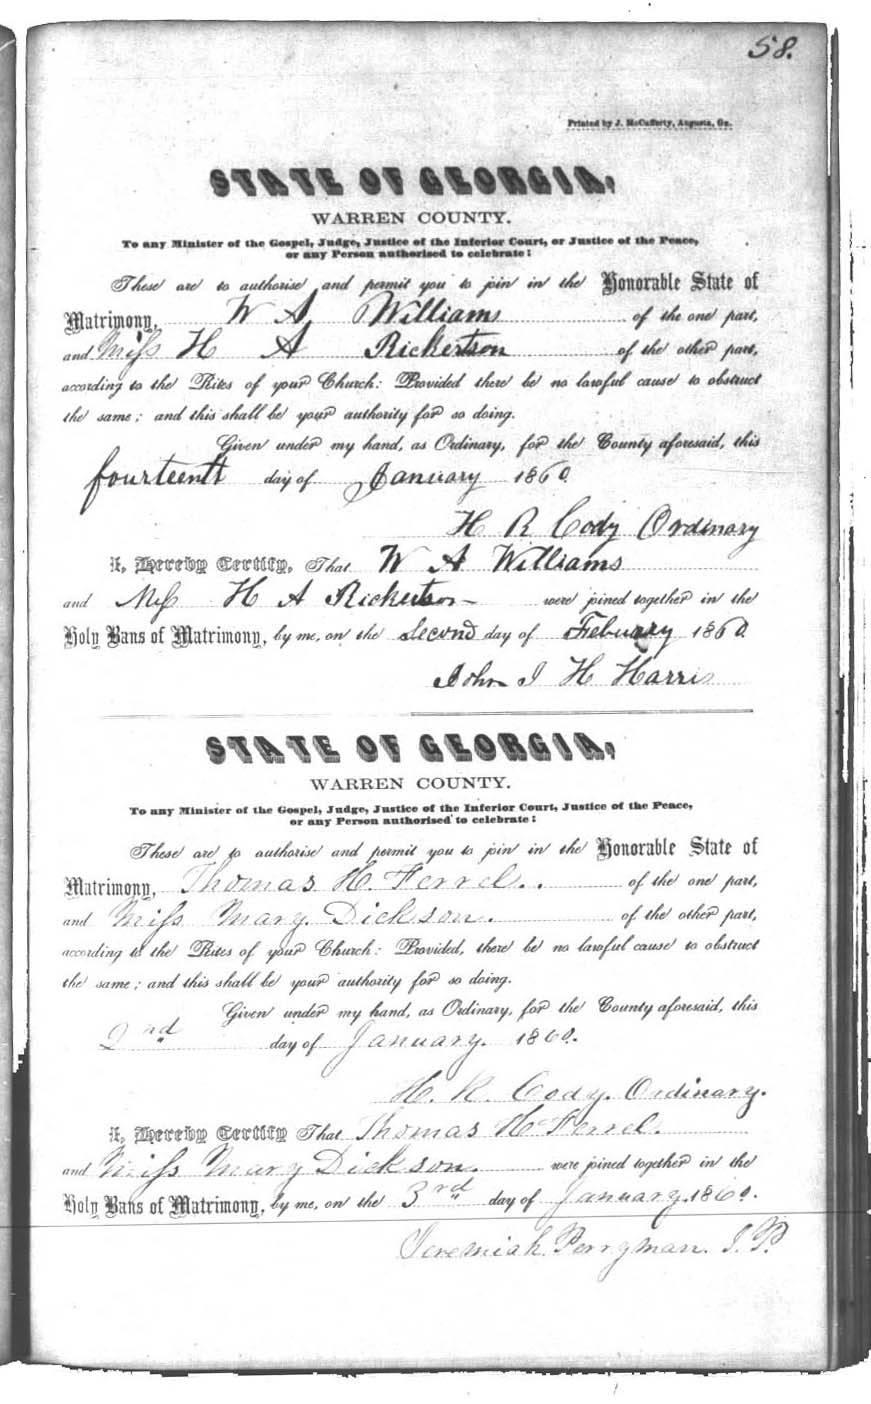 58.
Printed by J. McCafferty, Augusta, Ga.
STATE OF GEORGIA,
WARREN COUNTY.
To any Minister of the Gospel, Judge, Justice of the Inferior Court, or Justice of the Peace,
or any Person authorised to celebrate:
These are to authorise and permit you to join in the Honorable State of
Matrimony, W A Williams of the one part,
and Miss H A Rickertson of the other part,
according to the Rites of your Church: Provided there be no lawful cause to obstruct
the same; and this shall be your authority for so doing.
Given under my hand, as Ordinary, for the County aforesaid, this
fourteenth day of January 1860
H R Cody Ordinary
I, Hereby Certify, That W A Williams
and Miss H A Rickertson were joined together in the
Holy Bans of Matrimony, by me, on the Second day of Febuary 1860
John J H Harris
STATE OF GEORGIA,
WARREN COUNTY.
To any Minister of the Gospel, Judge, Justice of the Inferior Court, Justice of the Peace,
or any Person authorised to celebrate:
These are to authorise and permit you to join in the Honorable State of
Matrimony, Thomas H. Ferrel. of the one part,
and Miss Mary Dickson. of the other part,
according to the Rites of your Church: Provided, there be no lawful cause to obstruct
the same; and this shall be your authority for so doing.
Given under my hand, as Ordinary, for the County aforesaid, this
2nd day of January. 1860.
H. R. Cody. Ordinary.
I, Hereby Certify That Thomas H Ferrel.
and Miss Mary Dickson. were joined together in the
Holy Bans of Matrimony, by me, on the 3rd day of January. 1860.
Jeremiah Perryman. J. P.